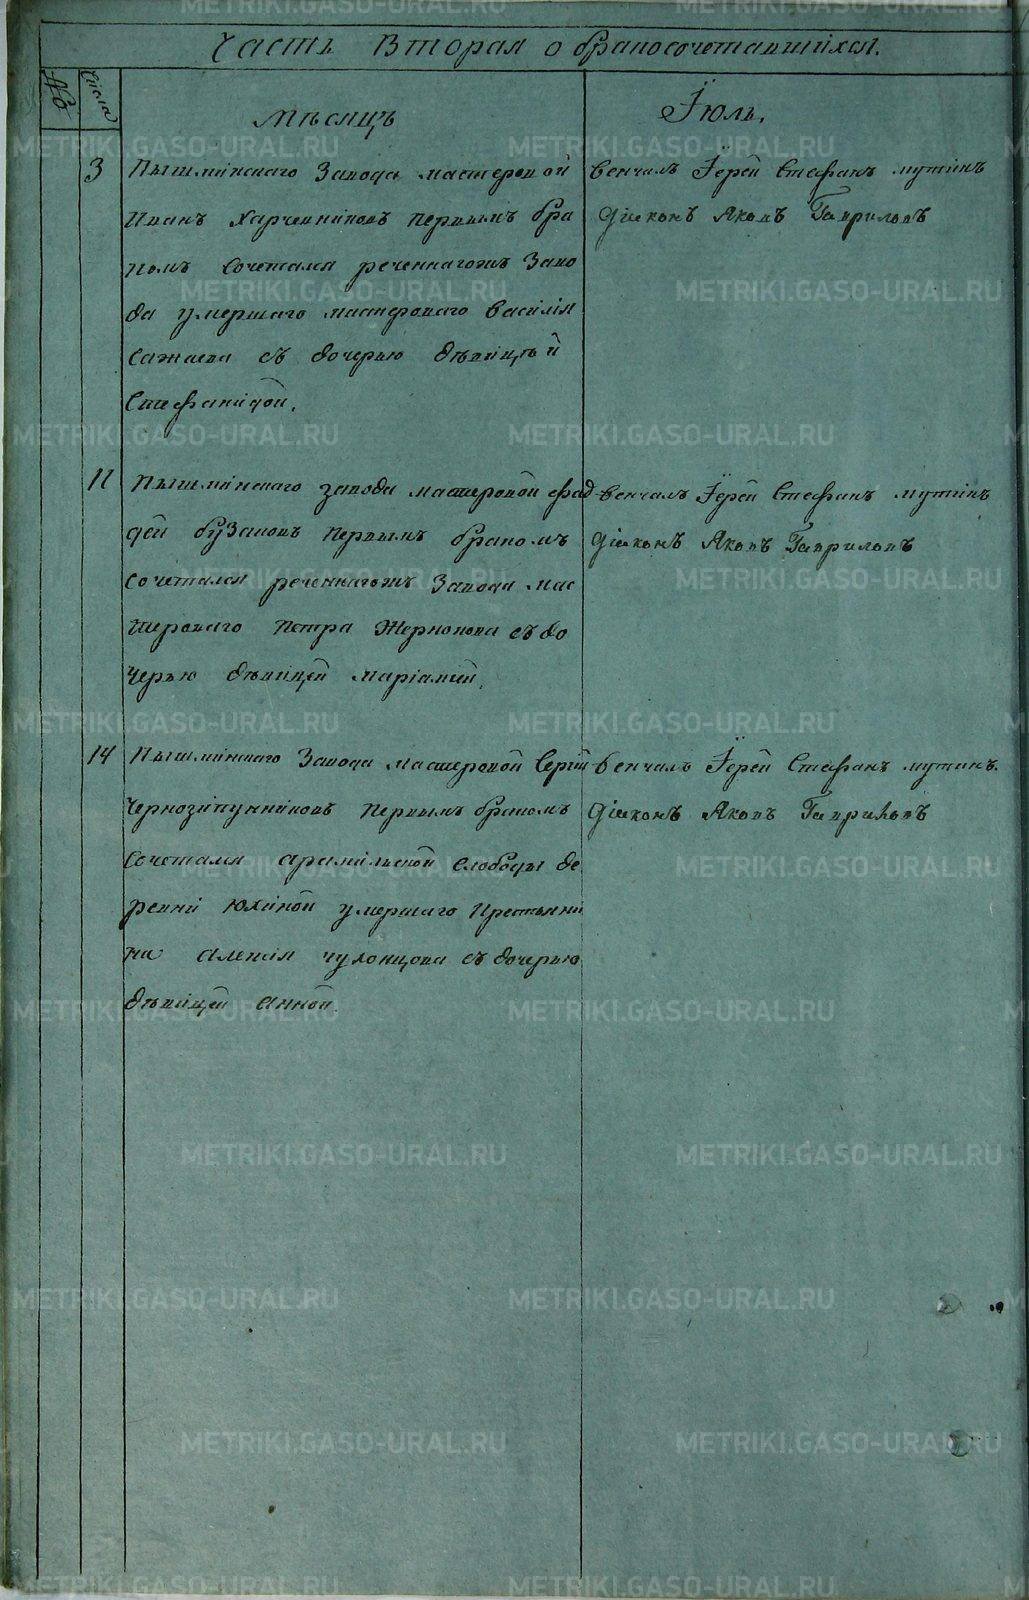 Часть Вторая о бракосочетавшихся.
№ Числа
Мѣсяцъ Їюль.
3 Пышминскаго Завода мастеровой
Иванъ Харчевниковъ первымъ бра
комъ сочетался реченнагожъ Заво
да умершаго мастероваго Василія
Сажаева съ дочерью дѣвицѣй
Стефанидой.
Венчалъ Їерей Стефанъ мутинъ
Діаконъ Яковъ Гавриловъ
11 Пышминскаго завода мастеровой Фад
дей бузановъ первымъ бракомъ
сочетался реченнагожъ Завода мас
тероваго Петра Жерновова съ до
черью дѣвицей маріамией.
венчалъ Їерей Стефанъ мутинъ
Діаконъ Яковъ Гавриловъ
14 Пышминскаго Завода мастеровой Сергий
Чернозіпунниковъ первымъ бракомъ
сочетался арамильской слободы де
ревни юхиной умершаго крестьяни
на алексія чухонцова съ дочерью
дѣвицей анной.
Венчалъ Їерей Стефанъ мутинъ.
Діаконъ Яковъ Гавриловъ
METRIKI.GASO-URAL.RU